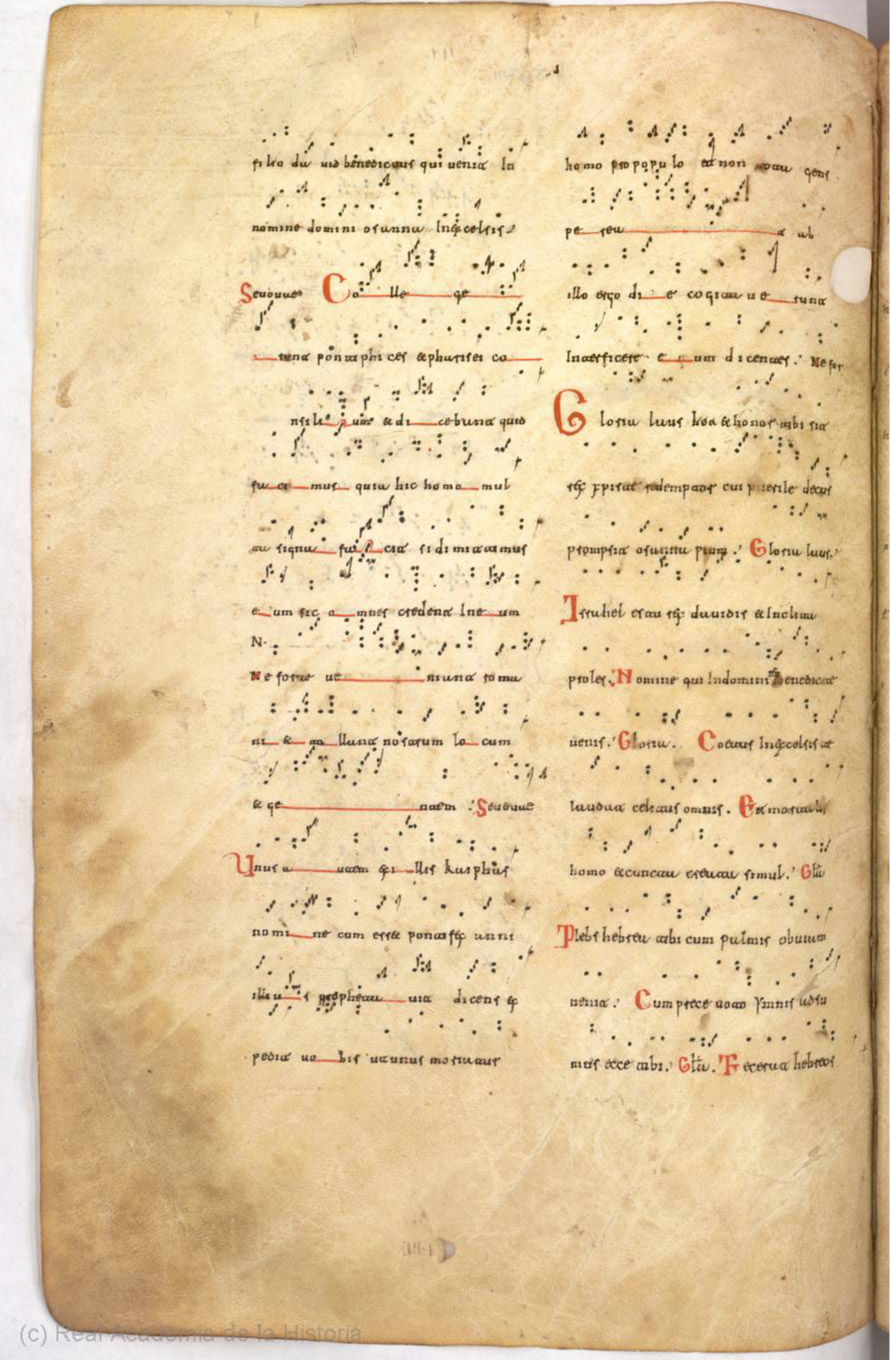 filio dauid benedictus qui uenit In
nomine domini osanna Inexcelsis
Seuouae Co lle ge
runt pontiphices et pharisei co
nsili um et di cebant quid
fa ci mus quia hic homo mul
ta signa fa cit si dimittimus
e um sic o mnes credent In e um
N.
Ne forte ue niant roma
ni et to llant nostrum lo cum
et ge ntem Seuouae
Unus a utem ex i llis kaiphas
nomi ne cum esset pontifex anni
illiu s propheta uit dicens ex
pedit uo bis ut unus moriatur
homo pro populo et non tota gens
pe rea t ab
illo ergo di e cogitaue runt
Interficere e um dicentes. Ne for
Gloria laus et honor tibi sit
rex xpiste redemptor cui puerile decus
prompsit osanna pium. Gloria laus.
Israhel es tu rex dauidis et Inclita
proles. Nomine qui Indomini benedicte
uenis. Gloria. Coetus Inexcelsis te
laudat celitus omnis. Et mortalis
homo et cuncta creata simul. Gla
Plebs hebrea tibi cum palmis obuiam
uenit. Cum prece uoto ymnis adsu
mus ecce tibi. Gla. Fecerat hebreos
(c) Real Academia de la Historia